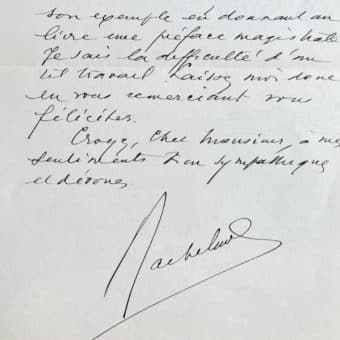 son exemple en donnant au
livre une préface magistrale
Je sais la difficulté d'un
tel travail. Laissez moi donc
en vous remerciant vous
féliciter.
Croyez, cher Monsieur, à mes
sentiments bien sympathiques
et dévoués
Bachelard